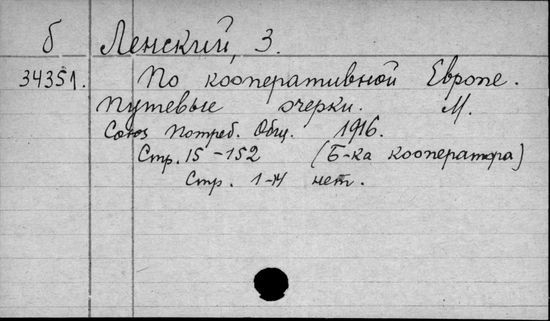 б Ленский, З.
34351. По кооперативной Европе.
Путевые очерки. М.
Союз Потреб. Общ. 1916.
Стр. 15-152 (Б-ка кооператора)
Стр. 1-14 нет.